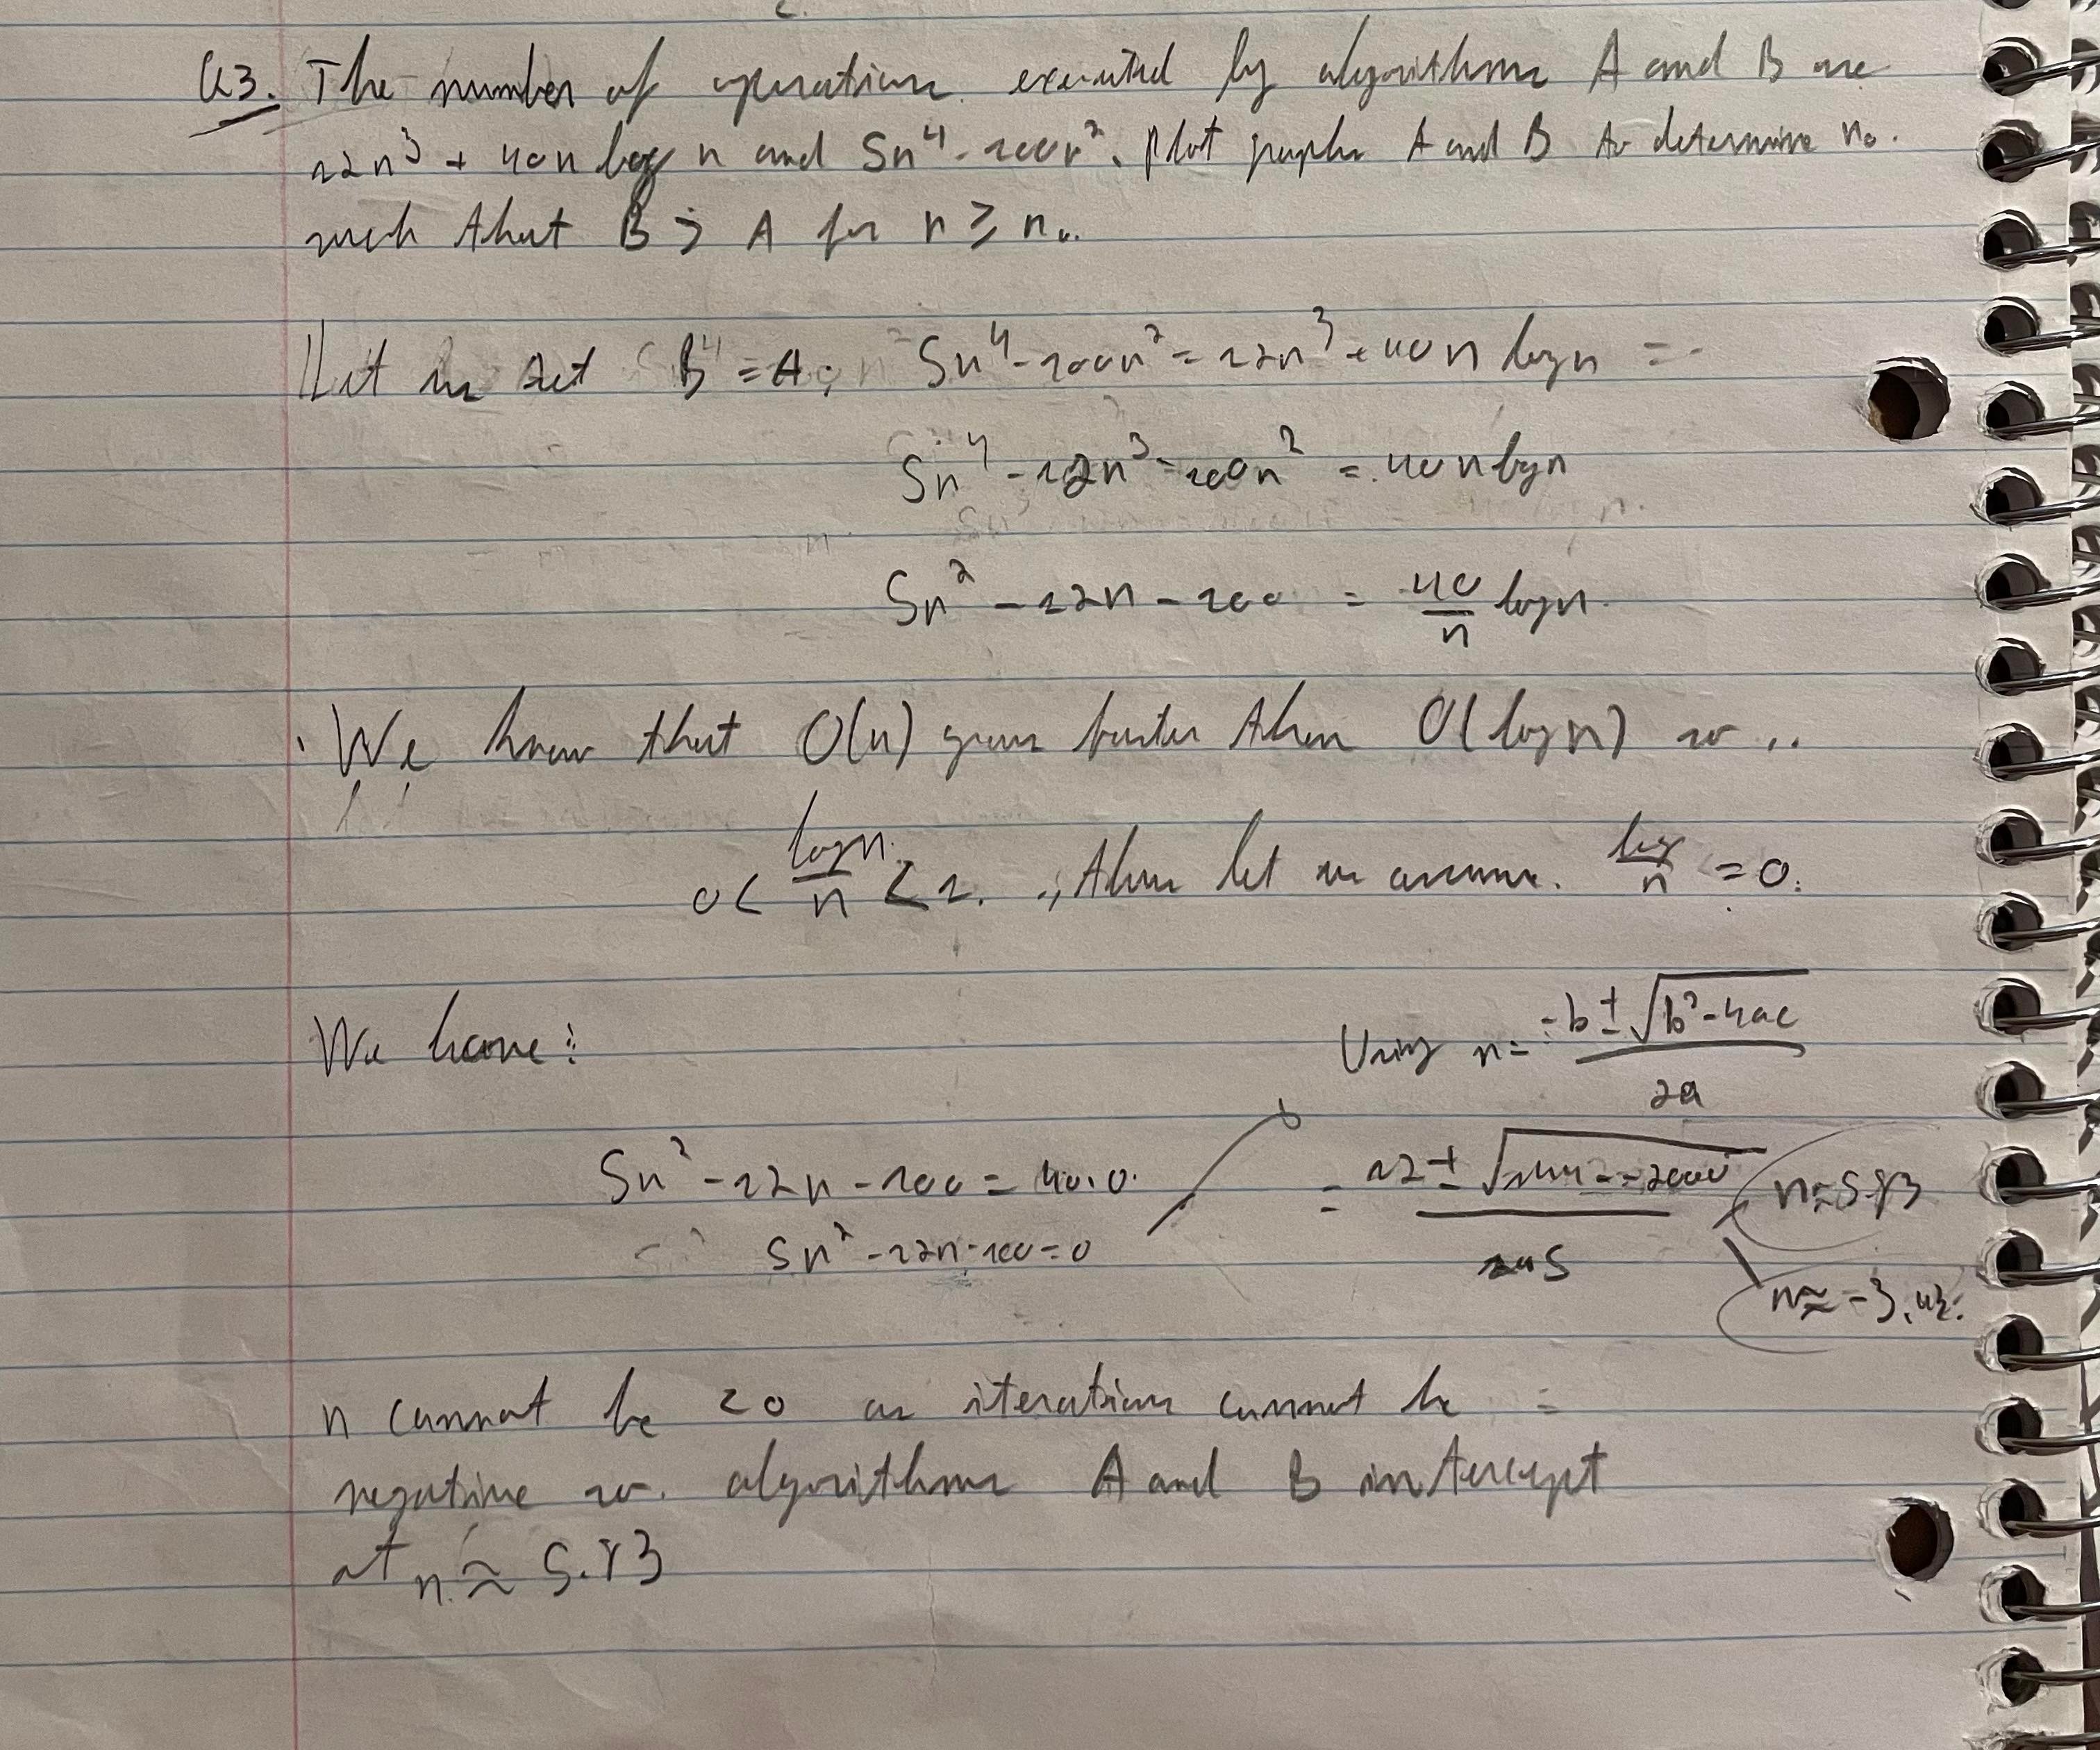 Q3. The number of operations executed by algorithms A and B are
12n³ + 40n log n and 5n⁴ - 100n². Plot graphs A and B to determine n₀
such that B > A for n ≥ n₀.
Let us set B = A; 5n⁴ - 100n² = 12n³ + 40n log n =
5n⁴ - 12n³ - 100n² = 40n log n
5n² - 12n - 100 = 40/n log n.
We know that O(n) grows faster than O(log n) so ..
0 < log n/n < 1. , then let us assume. log/n = 0.
We have: Using n = -b ± √(b² - 4ac) / 2a
5n² - 12n - 100 = 40.0.
= 12 ± √(144 - -2000) / 2·5 n ≈ 5.83
5n² - 12n - 100 = 0
n ≈ -3.43.
n cannot be < 0 as iterations cannot be
negative so. algorithms A and B intercept
at n ≈ 5.83